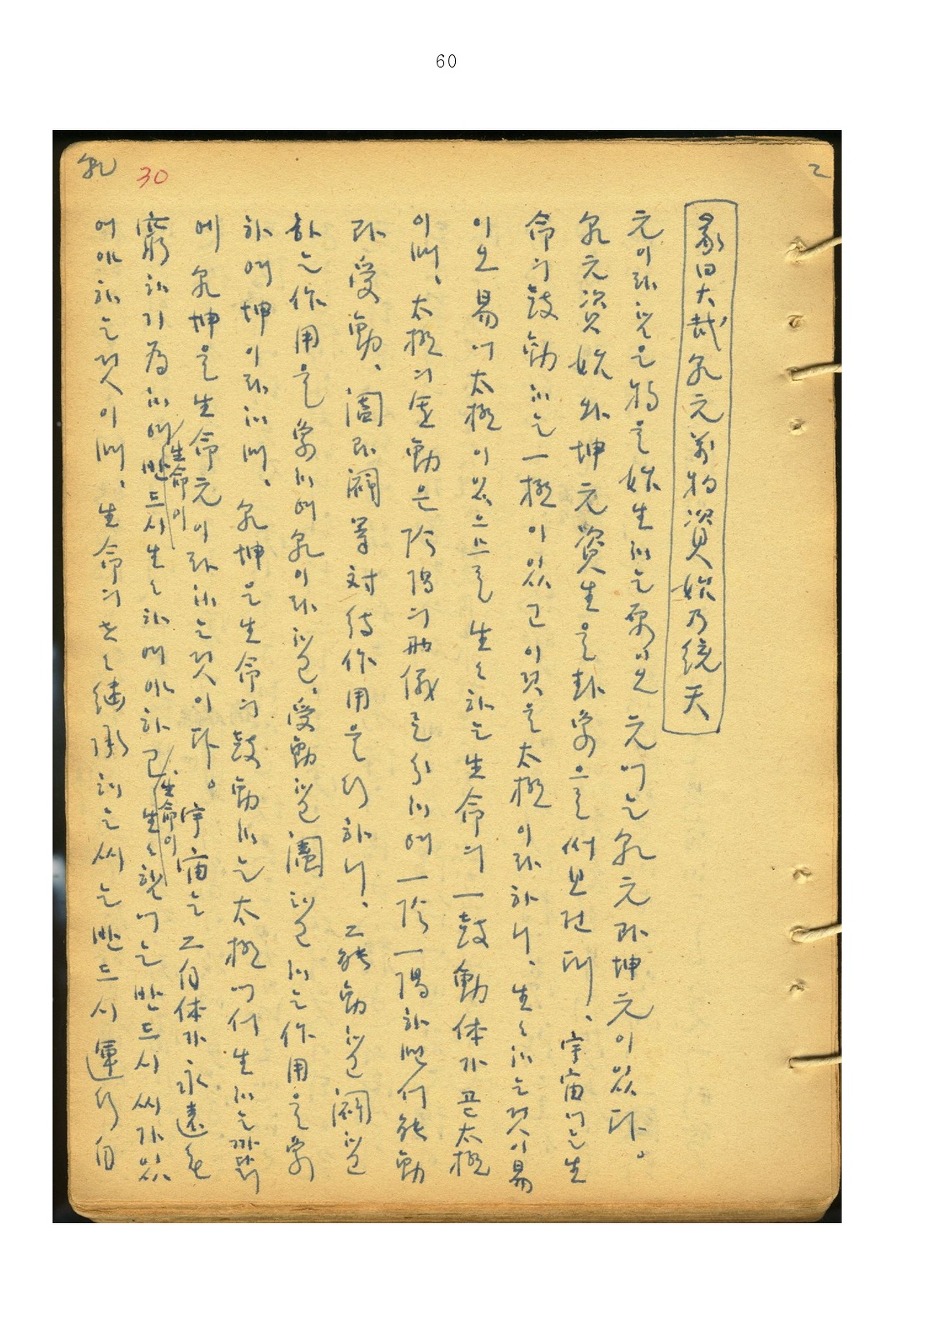 60
乙
30
乾
彖曰大哉乾元萬物資始乃統天
元이라함은物을始生하는原으로元에는乾元과坤元이있다。
乾元資始와坤元資生을卦象으로써보건대、宇宙에는生
命의鼓動하는一極이있고이것을太極이라하니、生生하는것이易
이오易에太極이있으므로生生하는生命의一鼓動体가곧太極
이며、太極의運動은陰陽의兩儀로分하여一陰一陽하면서能動
과受動、闔과闢等対待作用을行하니、그能動하고闢하고
하는作用을象하여乾이라하고、受動하고闔하고하는作用을象
하여坤이라하며、乾坤은生命의鼓動하는太極에서生하는까닭
에乾坤을生命元이라하는것이다。宇宙는그自体가永遠無
窮하기爲하여生命이반드시生生하여야하고生命이生生함에는반드시씨가있
어야하는것이며、生命의生生継承하는씨는반드시運行自